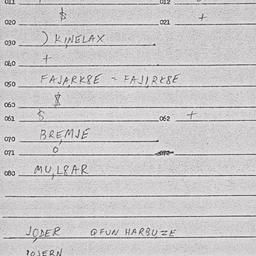 011 012
020 $ 021 +
030 ) KINELAX
040 +
050 FAJARK8E = FAJIRK8E
060 $
061 S 062 +
070 BREMJE
071 O
080 MU,L8AR
JODER OFUN HARBU=E